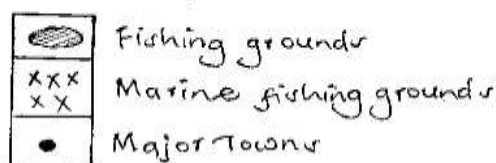 Fishing grounds
Marine fishing grounds
Major Towns